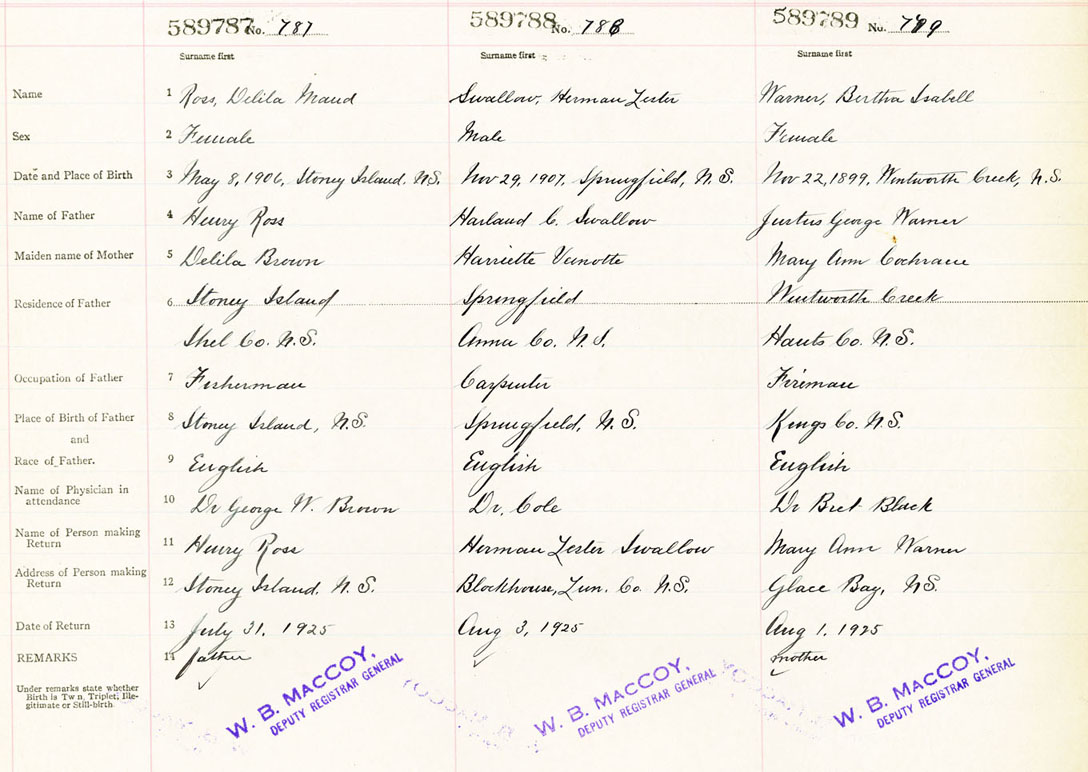 589787 No. 787 589788 No. 788 589789 No. 789
Surname first Surname first Surname first
Name 1 Ross, Delila Maud Swallow, Herman Lester Warner, Bertha Isabell
Sex 2 Female Male Female
Date and Place of Birth 3 May 8, 1906, Stoney Island, N.S. Nov 29, 1907, Springfield, N.S. Nov 22, 1899, Wentworth Creek, N.S.
Name of Father 4 Henry Ross Harland C. Swallow Justus George Warner
Maiden name of Mother 5 Delila Brown Harriette Veinotte Mary Ann Cochrane
Residence of Father 6 Stoney Island Springfield Wentworth Creek
Shel Co. N.S. Anna Co. N.S. Hants Co. N.S.
Occupation of Father 7 Fisherman Carpenter Fireman
Place of Birth of Father 8 Stoney Island, N.S. Springfield, N.S. Kings Co. N.S.
and
Race of Father. 9 English English English
Name of Physician in
attendance 10 Dr George W. Brown Dr. Cole Dr Bret Black
Name of Person making
Return 11 Henry Ross Herman Lester Swallow Mary Ann Warner
Address of Person making
Return 12 Stoney Island, N.S. Blockhouse, Lun. Co. N.S. Glace Bay, N.S.
Date of Return 13 July 31, 1925 Aug 3, 1925 Aug 1, 1925
REMARKS 14 father mother
Under remarks state whether
Birth is Twin, Triplet, Ille-
gitimate or Still-birth
W. B. MACCOY, W. B. MACCOY, W. B. MACCOY,
DEPUTY REGISTRAR GENERAL DEPUTY REGISTRAR GENERAL DEPUTY REGISTRAR GENERAL